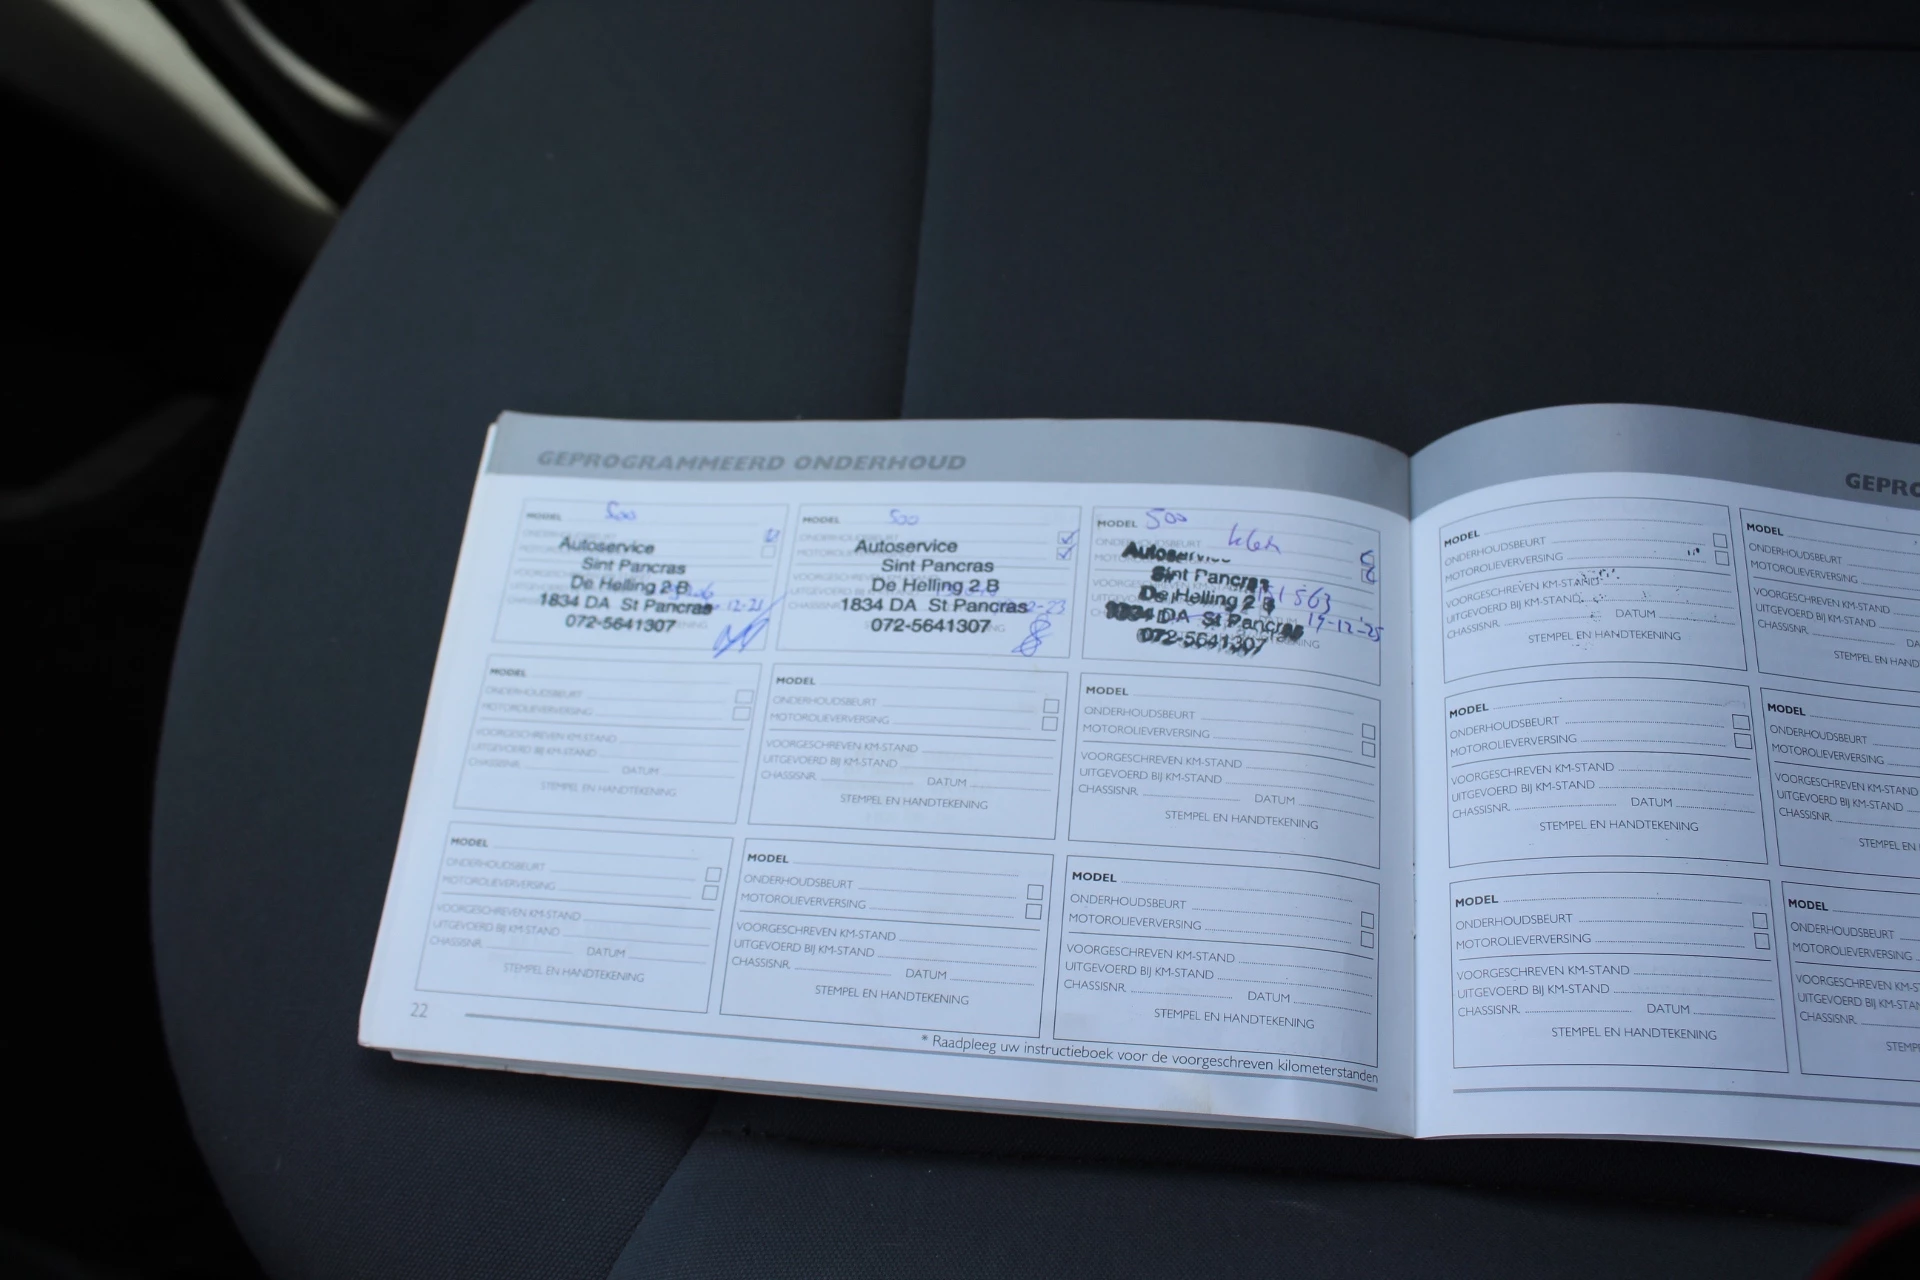 GEPROGRAMMEERD ONDERHOUD
MODEL 500
Autoservice
Sint Pancras
De Helling 2 B
1834 DA St Pancras
12-21
072-5641307
MODEL 500
Autoservice
Sint Pancras
De Helling 2 B
1834 DA St Pancras
2-23
072-5641307
MODEL 500
Autoservice
Sint Pancras
De Helling 2 B
563
1834 DA St Pancras
19-12-25
072-5641307
MODEL
ONDERHOUDSBEURT
MOTOROLIEVERVERSING
VOORGESCHREVEN KM-STAND
UITGEVOERD BIJ KM-STAND
CHASSISNR. DATUM
STEMPEL EN HANDTEKENING
MODEL
ONDERHOUDSBEURT
MOTOROLIEVERVERSING
VOORGESCHREVEN KM-STAND
UITGEVOERD BIJ KM-STAND
CHASSISNR. DATUM
STEMPEL EN HANDTEKENING
MODEL
ONDERHOUDSBEURT
MOTOROLIEVERVERSING
VOORGESCHREVEN KM-STAND
UITGEVOERD BIJ KM-STAND
CHASSISNR. DATUM
STEMPEL EN HANDTEKENING
MODEL
ONDERHOUDSBEURT
MOTOROLIEVERVERSING
VOORGESCHREVEN KM-STAND
UITGEVOERD BIJ KM-STAND
CHASSISNR. DATUM
STEMPEL EN HANDTEKENING
MODEL
ONDERHOUDSBEURT
MOTOROLIEVERVERSING
VOORGESCHREVEN KM-STAND
UITGEVOERD BIJ KM-STAND
CHASSISNR. DATUM
STEMPEL EN HANDTEKENING
MODEL
ONDERHOUDSBEURT
MOTOROLIEVERVERSING
VOORGESCHREVEN KM-STAND
UITGEVOERD BIJ KM-STAND
CHASSISNR. DATUM
STEMPEL EN HANDTEKENING
22
* Raadpleeg uw instructieboek voor de voorgeschreven kilometerstanden
GEPRO
MODEL
ONDERHOUDSBEURT
MOTOROLIEVERVERSING
VOORGESCHREVEN KM-STAND
UITGEVOERD BIJ KM-STAND
CHASSISNR. DATUM
STEMPEL EN HANDTEKENING
MODEL
ONDERHOUDSBEURT
MOTOROLIEVERVERSING
VOORGESCHREVEN KM-STAND
UITGEVOERD BIJ KM-STAND
CHASSISNR. DA
STEMPEL EN HAND
MODEL
ONDERHOUDSBEURT
MOTOROLIEVERVERSING
VOORGESCHREVEN KM-STAND
UITGEVOERD BIJ KM-STAND
CHASSISNR. DATUM
STEMPEL EN HANDTEKENING
MODEL
ONDERHOUDSBEURT
MOTOROLIEVERVERSING
VOORGESCHREVEN KM-STAND
UITGEVOERD BIJ KM-STAND
CHASSISNR.
STEMPEL EN
MODEL
ONDERHOUDSBEURT
MOTOROLIEVERVERSING
VOORGESCHREVEN KM-STAND
UITGEVOERD BIJ KM-STAND
CHASSISNR. DATUM
STEMPEL EN HANDTEKENING
MODEL
ONDERHOUDSBEURT
MOTOROLIEVERVERSING
VOORGESCHREVEN KM-S
UITGEVOERD BIJ KM-STAN
CHASSISNR.
STEMP